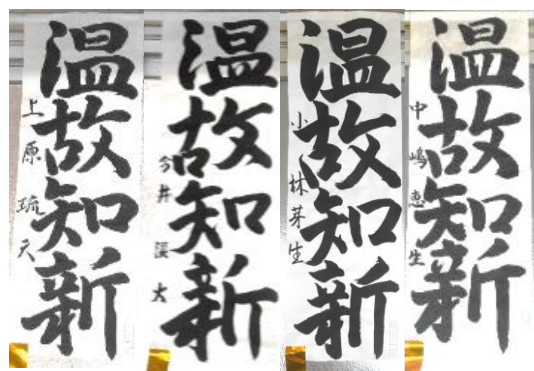 温故知新
上原琉天
温故知新
今井
温故知新
小林芽生
温故知新
中嶋恵生